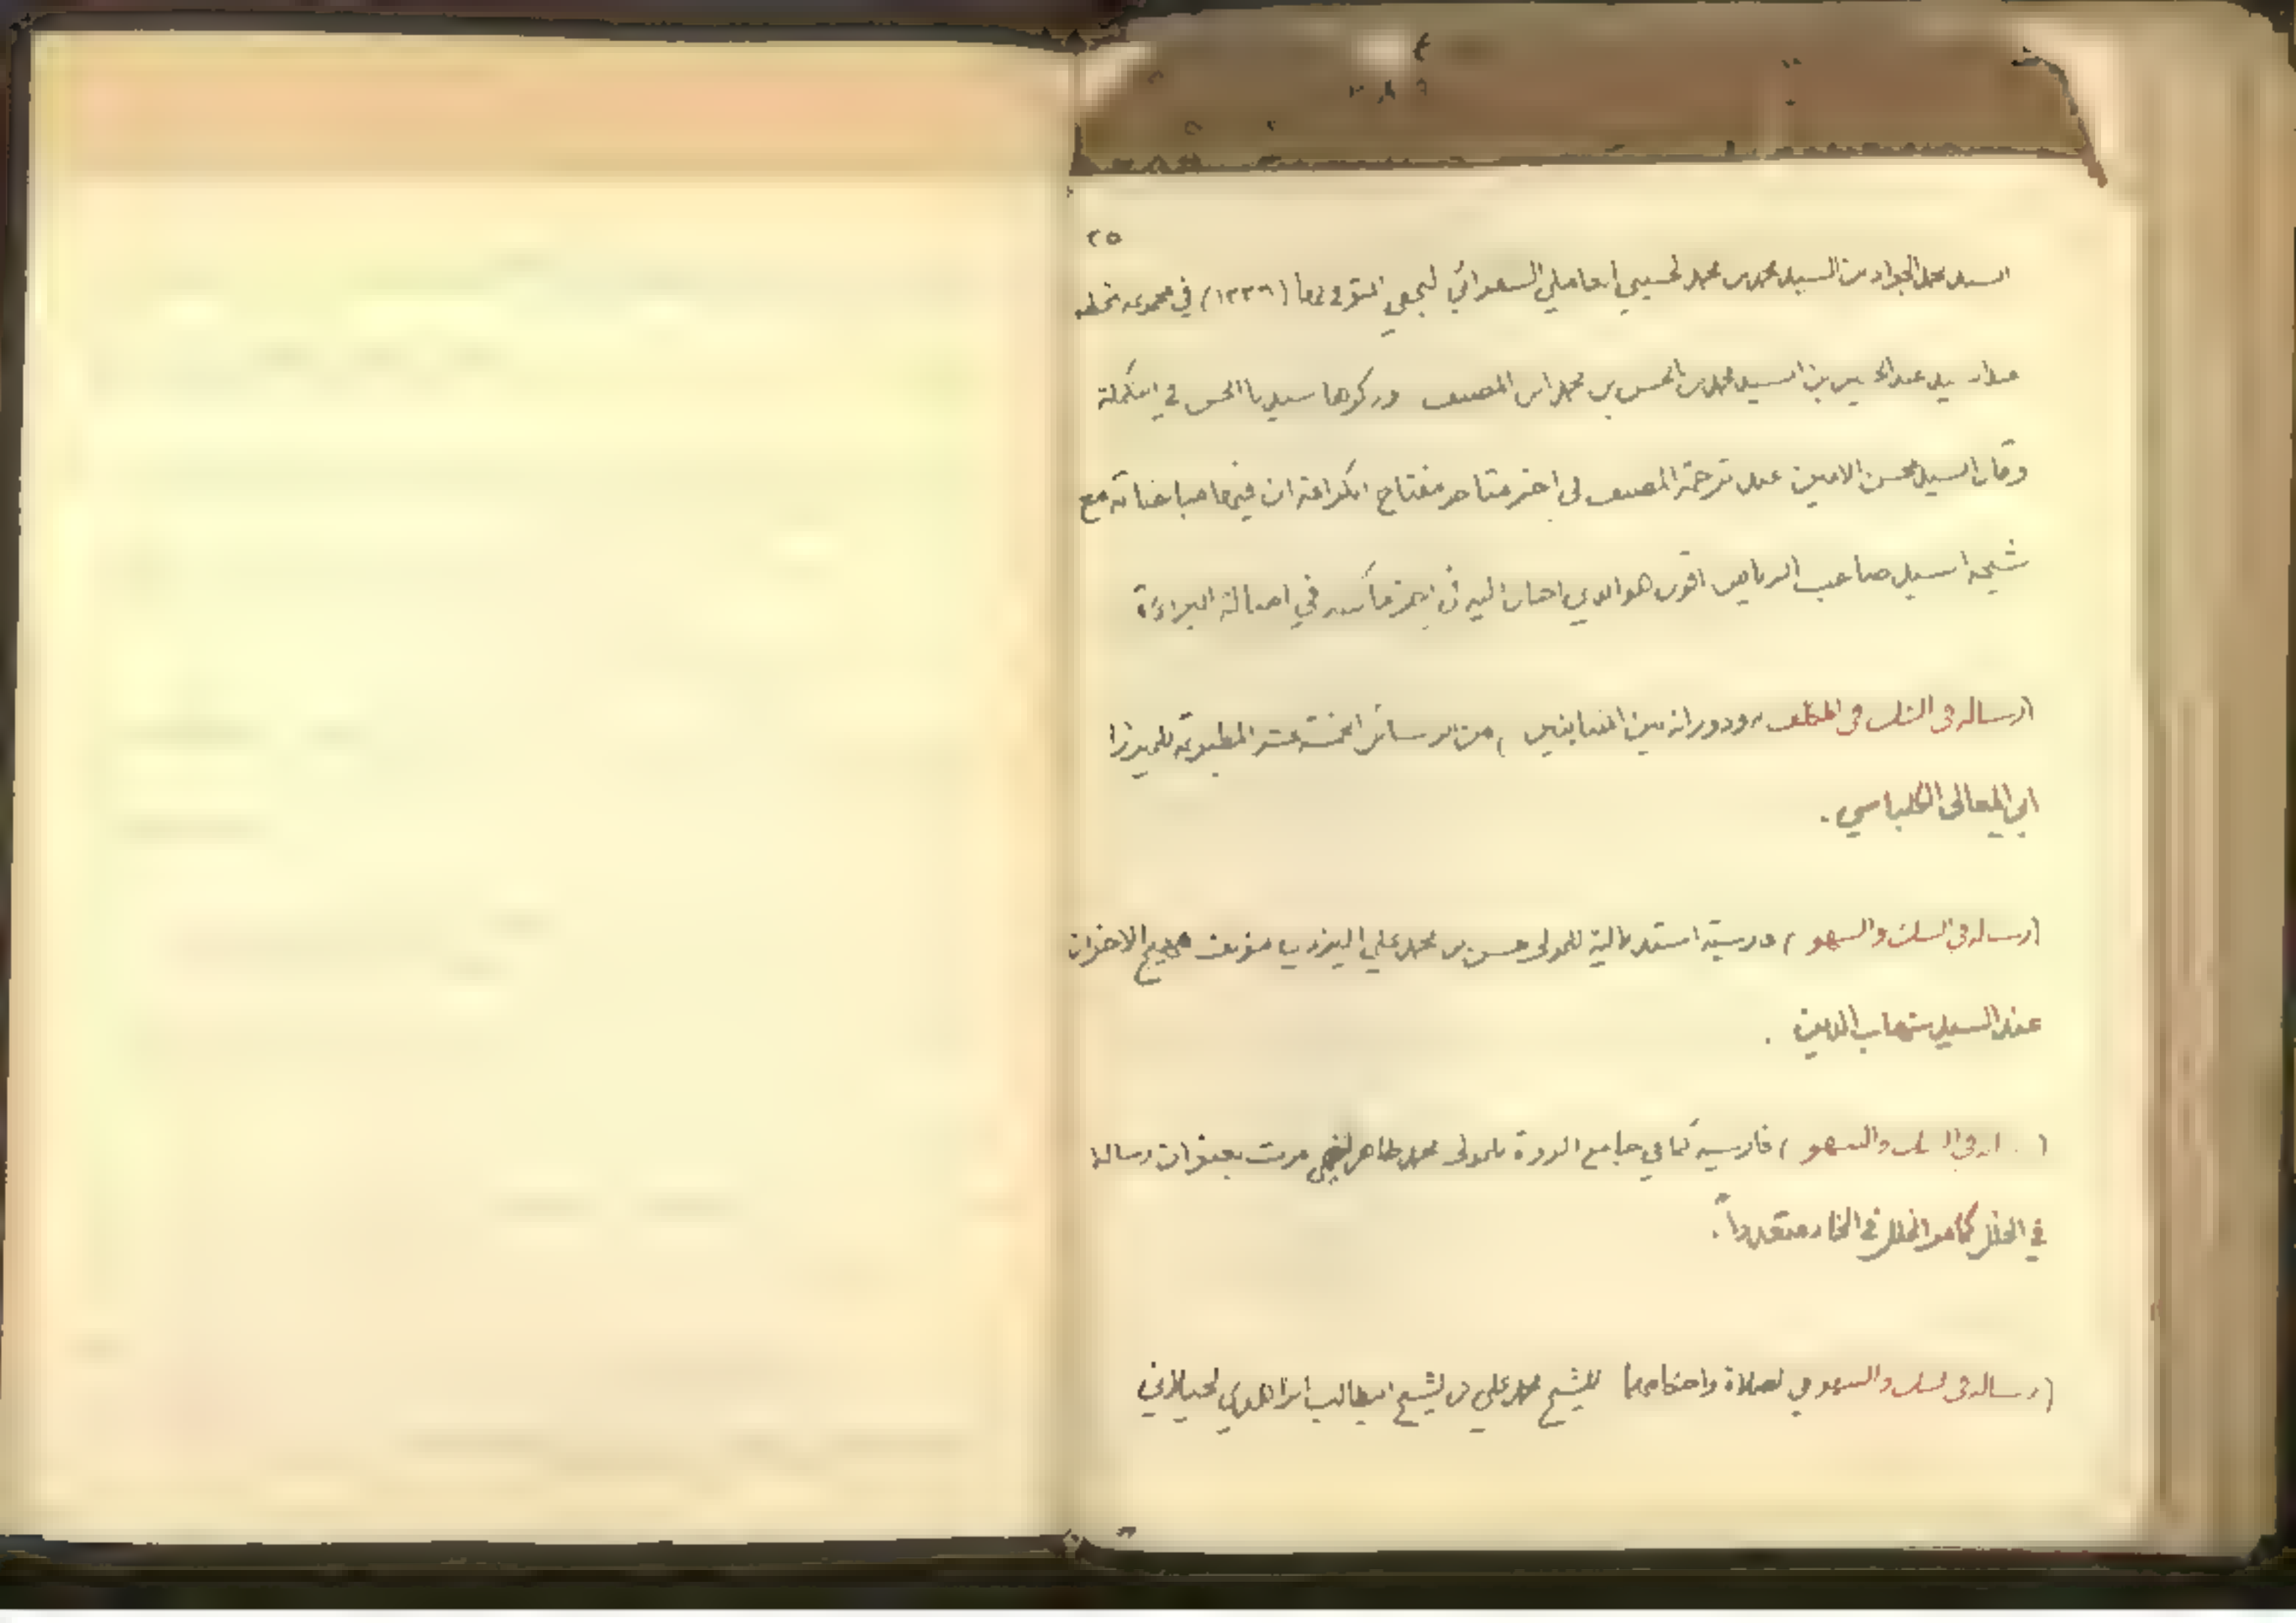 ٢٥
السيد محمد الجواد من السيد محمد بن محمد الحسيني العاملي الشقرائي النجفي المتوفى بها (١٢٢٦) في مجموعة بخطه
عند السيد عبد الحسين بن السيد محمد بن الحسن بن محمد ابن المصنف وذكرها سيدنا الحسن في التكملة
وقال السيد محسن الامين عند ترجمة المصنف في اخر متاجر مفتاح الكرامة ان فيها مباحثاته مع
شيخه السيد صاحب الرياض اقول هو الذي احال اليه في في اصالة البراءة
(رسالة في الشك في المكلف به ودورانه بين المتباينين) من الرسائل الخمسة عشر المطبوعة للميرزا
ابي المعالي الكلباسي .
(رسالة في الشك والسهو) فارسية استدلالية للمولى حسن بن محمد علي اليزدي مؤلف مهيج الاحزان
عند السيد شهاب الدين .
( في الشك والسهو) فارسية كما في جامع الرواة للمولى محمد طاهر القمي مرت بعنوان رسالة
في الخلل كما مر الخلل في الخاء متعددا .
(رسالة في الشك والسهو في الصلاة واحكامهما للشيخ محمد علي بن الشيخ ابيطالب الزاهدي الجيلاني